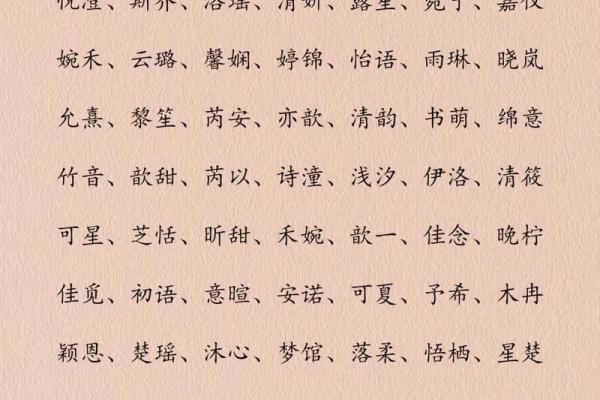 悦澄、斯乔、洛瑶、清妍、露笙、宛宁、嘉仪
婉禾、云璐、馨娴、婷锦、怡语、雨琳、晓岚
允熹、黎笙、芮安、亦歆、清韵、书萌、绵意
竹音、歆甜、芮以、诗潼、浅汐、伊洛、清筱
可星、芝恬、昕甜、禾婉、歆一、佳念、晚柠
佳觅、初语、意暄、安诺、可夏、予希、木冉
颖恩、楚瑶、沐心、梦馆、落柔、悟栖、星楚